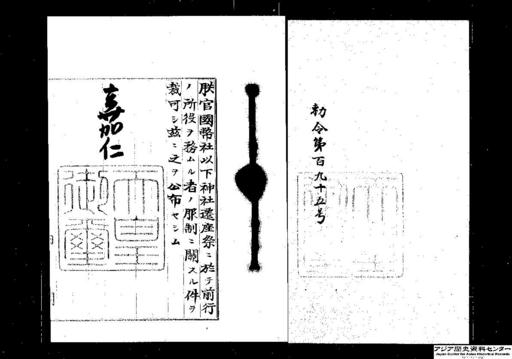 勅令第百九十五号
朕官國幣社以下神社遷座祭ニ於テ前行
ノ所役ヲ務ムル者ノ服制ニ關スル件ヲ
裁可シ茲ニ之ヲ公布セシム
嘉仁
天皇
御璽
アジア歴史資料センター
Japan Center for Asian Historical Records